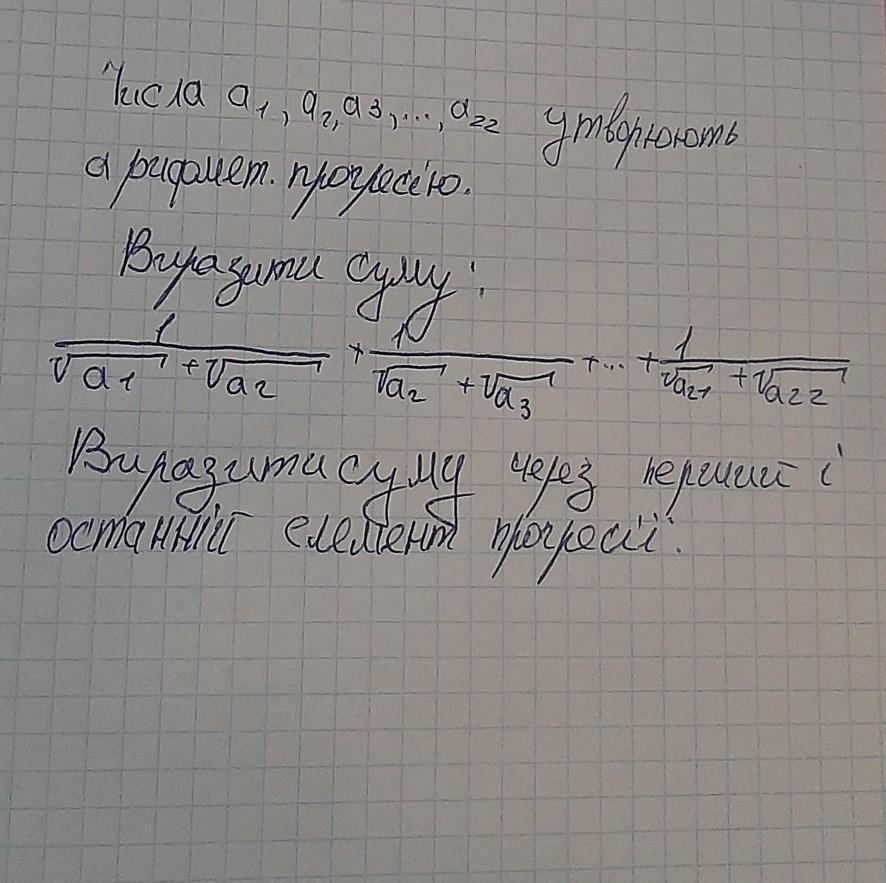 Числа a₁, a₂, a₃, ..., a₂₂ утворюють
аридмет. прогресію.
Виразити суму:
1/(√a₁ + √a₂) + 1/(√a₂ + √a₃) + ... + 1/(√a₂₁ + √a₂₂)
Виразити суму через перший і
останній елемент прогресії.